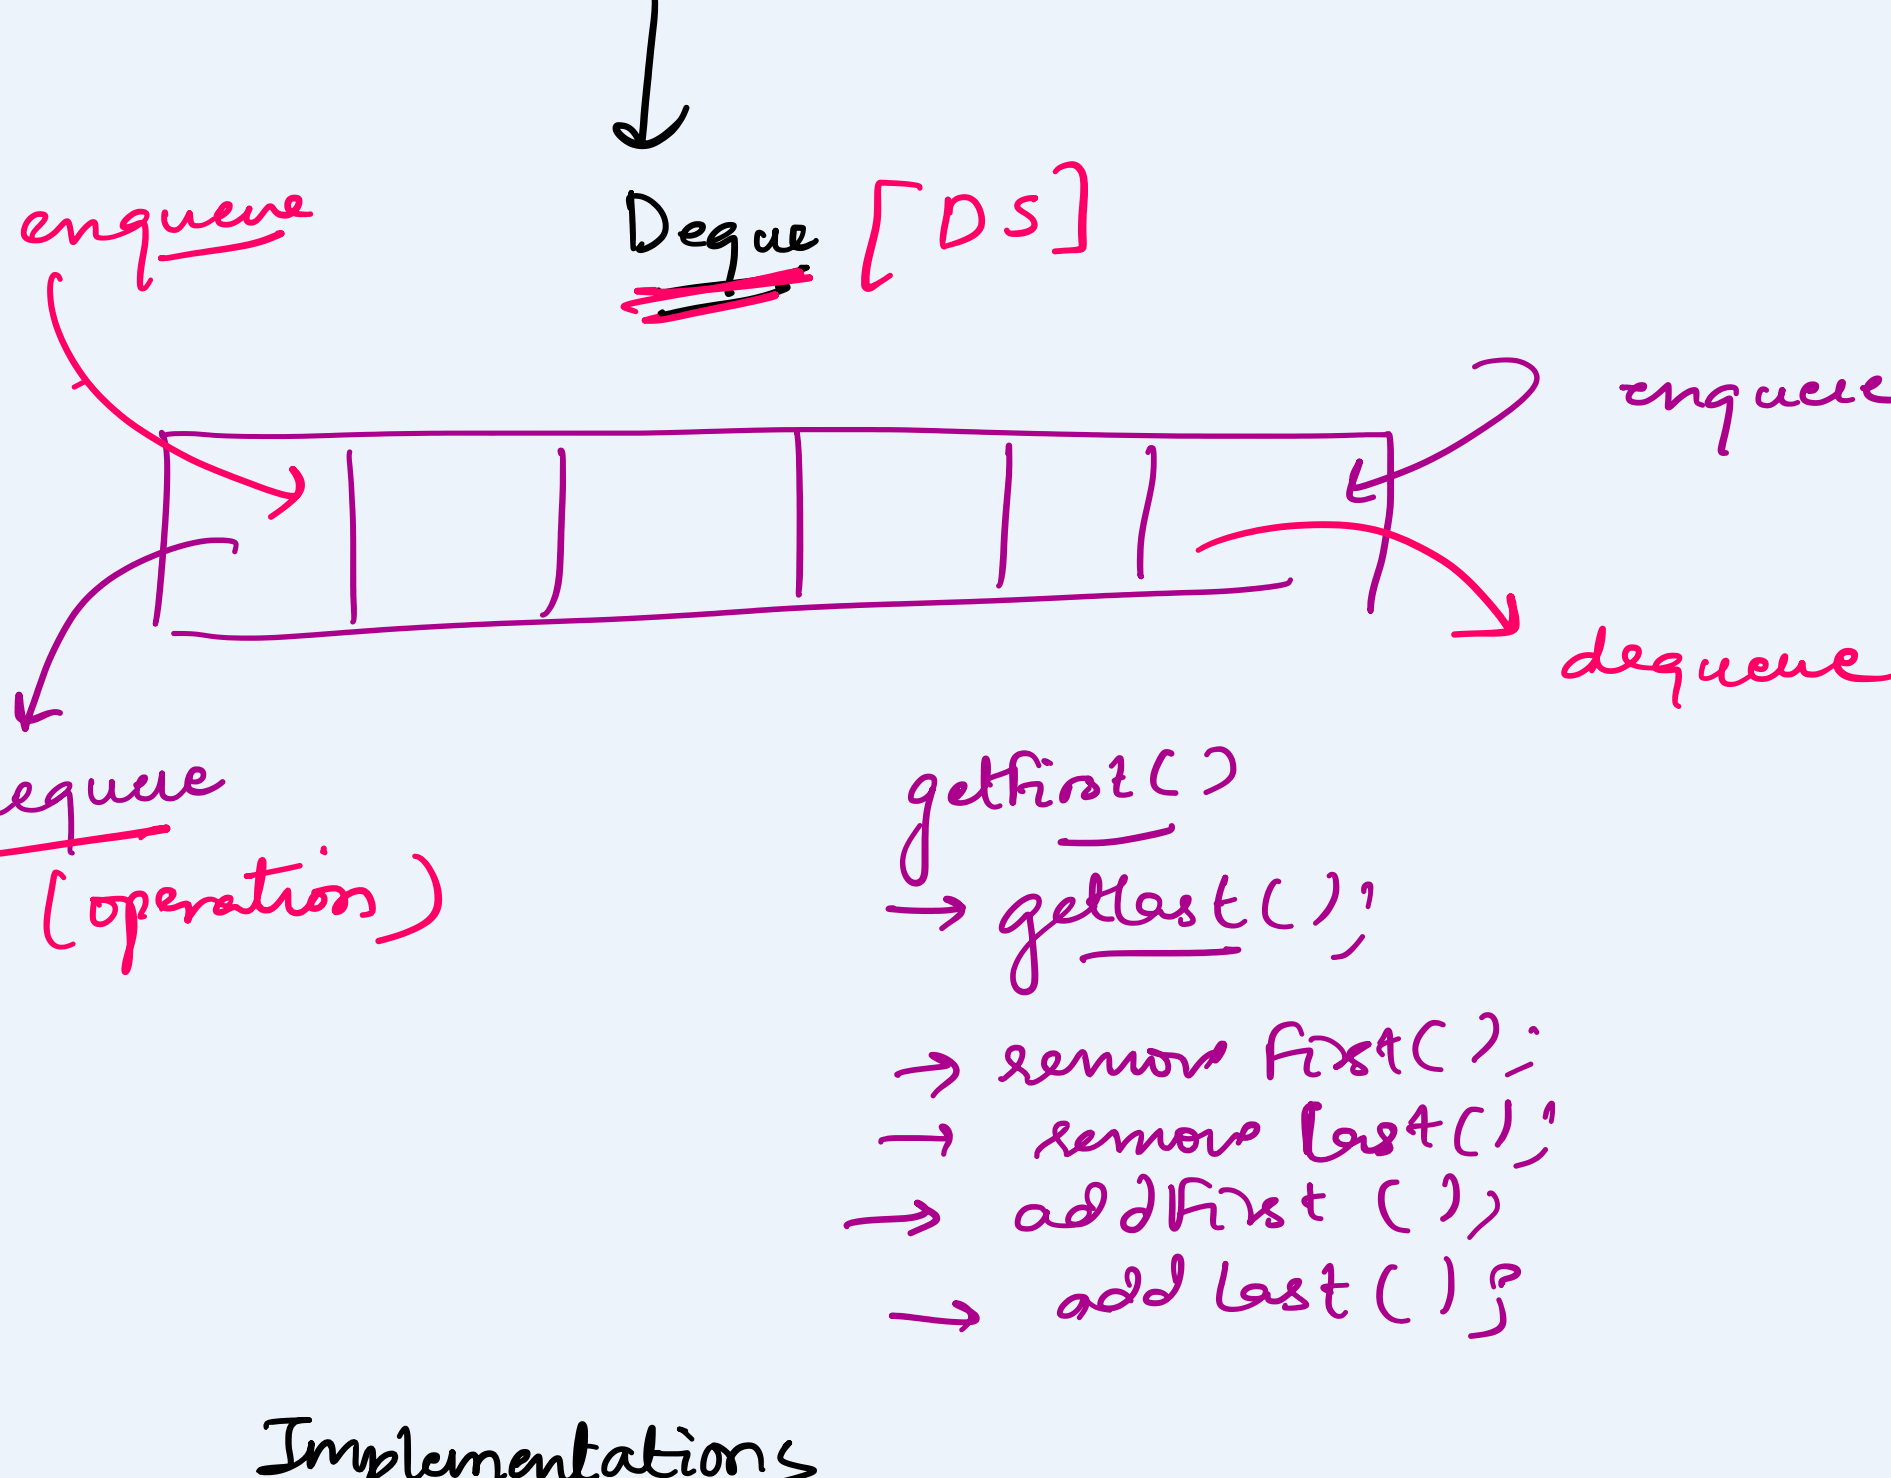 enqueue
Deque [DS]
enqueue
dequeue
equeue
(operation)
getFirst()
→ getLast();
→ remove First();
→ remove Last();
→ addFirst();
→ add Last();
Implementations